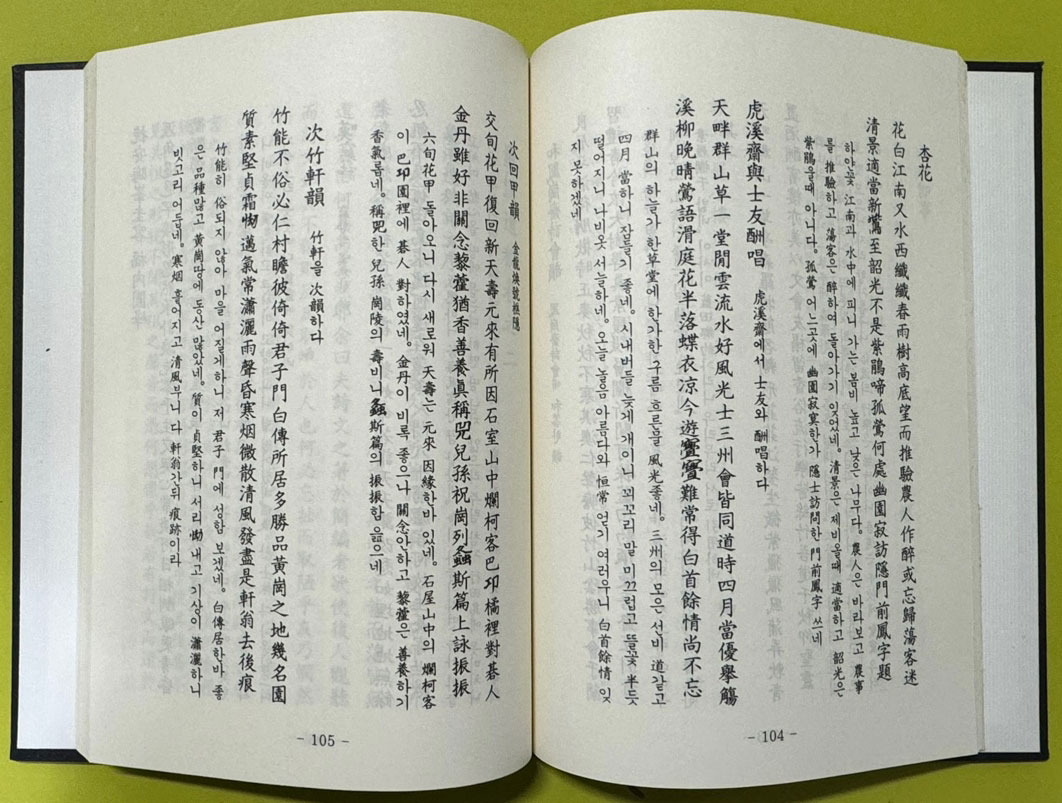 杏花
花白江南又水西纖纖春雨樹高底望而推驗農人作醉或忘歸蕩客迷
淸景適當新鶯至韶光不是紫鵑啼孤鶯何處幽園寂訪隱門前鳳字題
하야꽃 江南과 水中에 피니 가는 봄비 높고 낮은 나무다。農人은 바라보고 農事
를 推驗하고 蕩客은 醉하여 돌아가기 잊었네。淸景은 제비올때 適當하고 韶光은
紫鵑울때 아니다。孤鶯 어느곳에 幽園寂寞한가 隱士訪問한 門前鳳字 쓰네
虎溪齋與士友酬唱 虎溪齋에서 士友와 酬唱하다
天畔群山草一堂閒雲流水好風光士三州會皆同道時四月當優擧觴
溪柳晩晴鶯語滑庭花半落蝶衣凉今遊難常得白首餘情尚不忘
群山의 하늘가 한草堂에 한가한 구름 흐르물 風光좋네。三州의 모은 선비 道같고
四月 當하니 잡들기 좋네。시내버들 늦게 개이니 꾀꼬리 말 미끄럽고 뜰꽃 半듯
떨어지니 나비옷 서늘하네。오늘놀음 아름다와 恒常 얻기 여려우니 白首餘情 잊
지 못하겠네
- 104 -
次回甲韻
交旬花甲復回新天壽元來有所因石室山中爛柯客巴邛橘裡對碁人
金丹雖好非關念藜藿猶香善養眞稱兕兒孫祝崗列螽斯篇上詠振振
六旬花甲 돌아오니 다시 새로워 天壽는 元來 因緣하바 있네。石屋山中의 爛柯客
이 巴邛園裡에 碁人 對하였네。金丹이 비록 좋으나 關念안하고 藜藿은 善養하기
香氣롭네。稱兕한 兒孫 崗陵의 壽비니 螽斯篇의 振振함 읊으네
次竹軒韻 竹軒을 次韻하다
竹能不俗必仁村瞻彼倚倚君子門白傳所居多勝品黃崗之地幾名園
質素堅貞霜邁氣常瀟灑雨聲昏寒烟微散淸風發盡是軒翁去後痕
竹能히 俗되지 않아 마을 어질게하니 저 君子 門에 성함 보겠네。白傳居하바 좋
은 品種많고 黃崗땅에 동산 많았네。質이 貞堅하니 서리 내고 기상이 瀟灑하니
빗고리 어둡네。寒烟 흩어지고 淸風부니 다 軒翁간뒤 痕跡이라
- 105 -